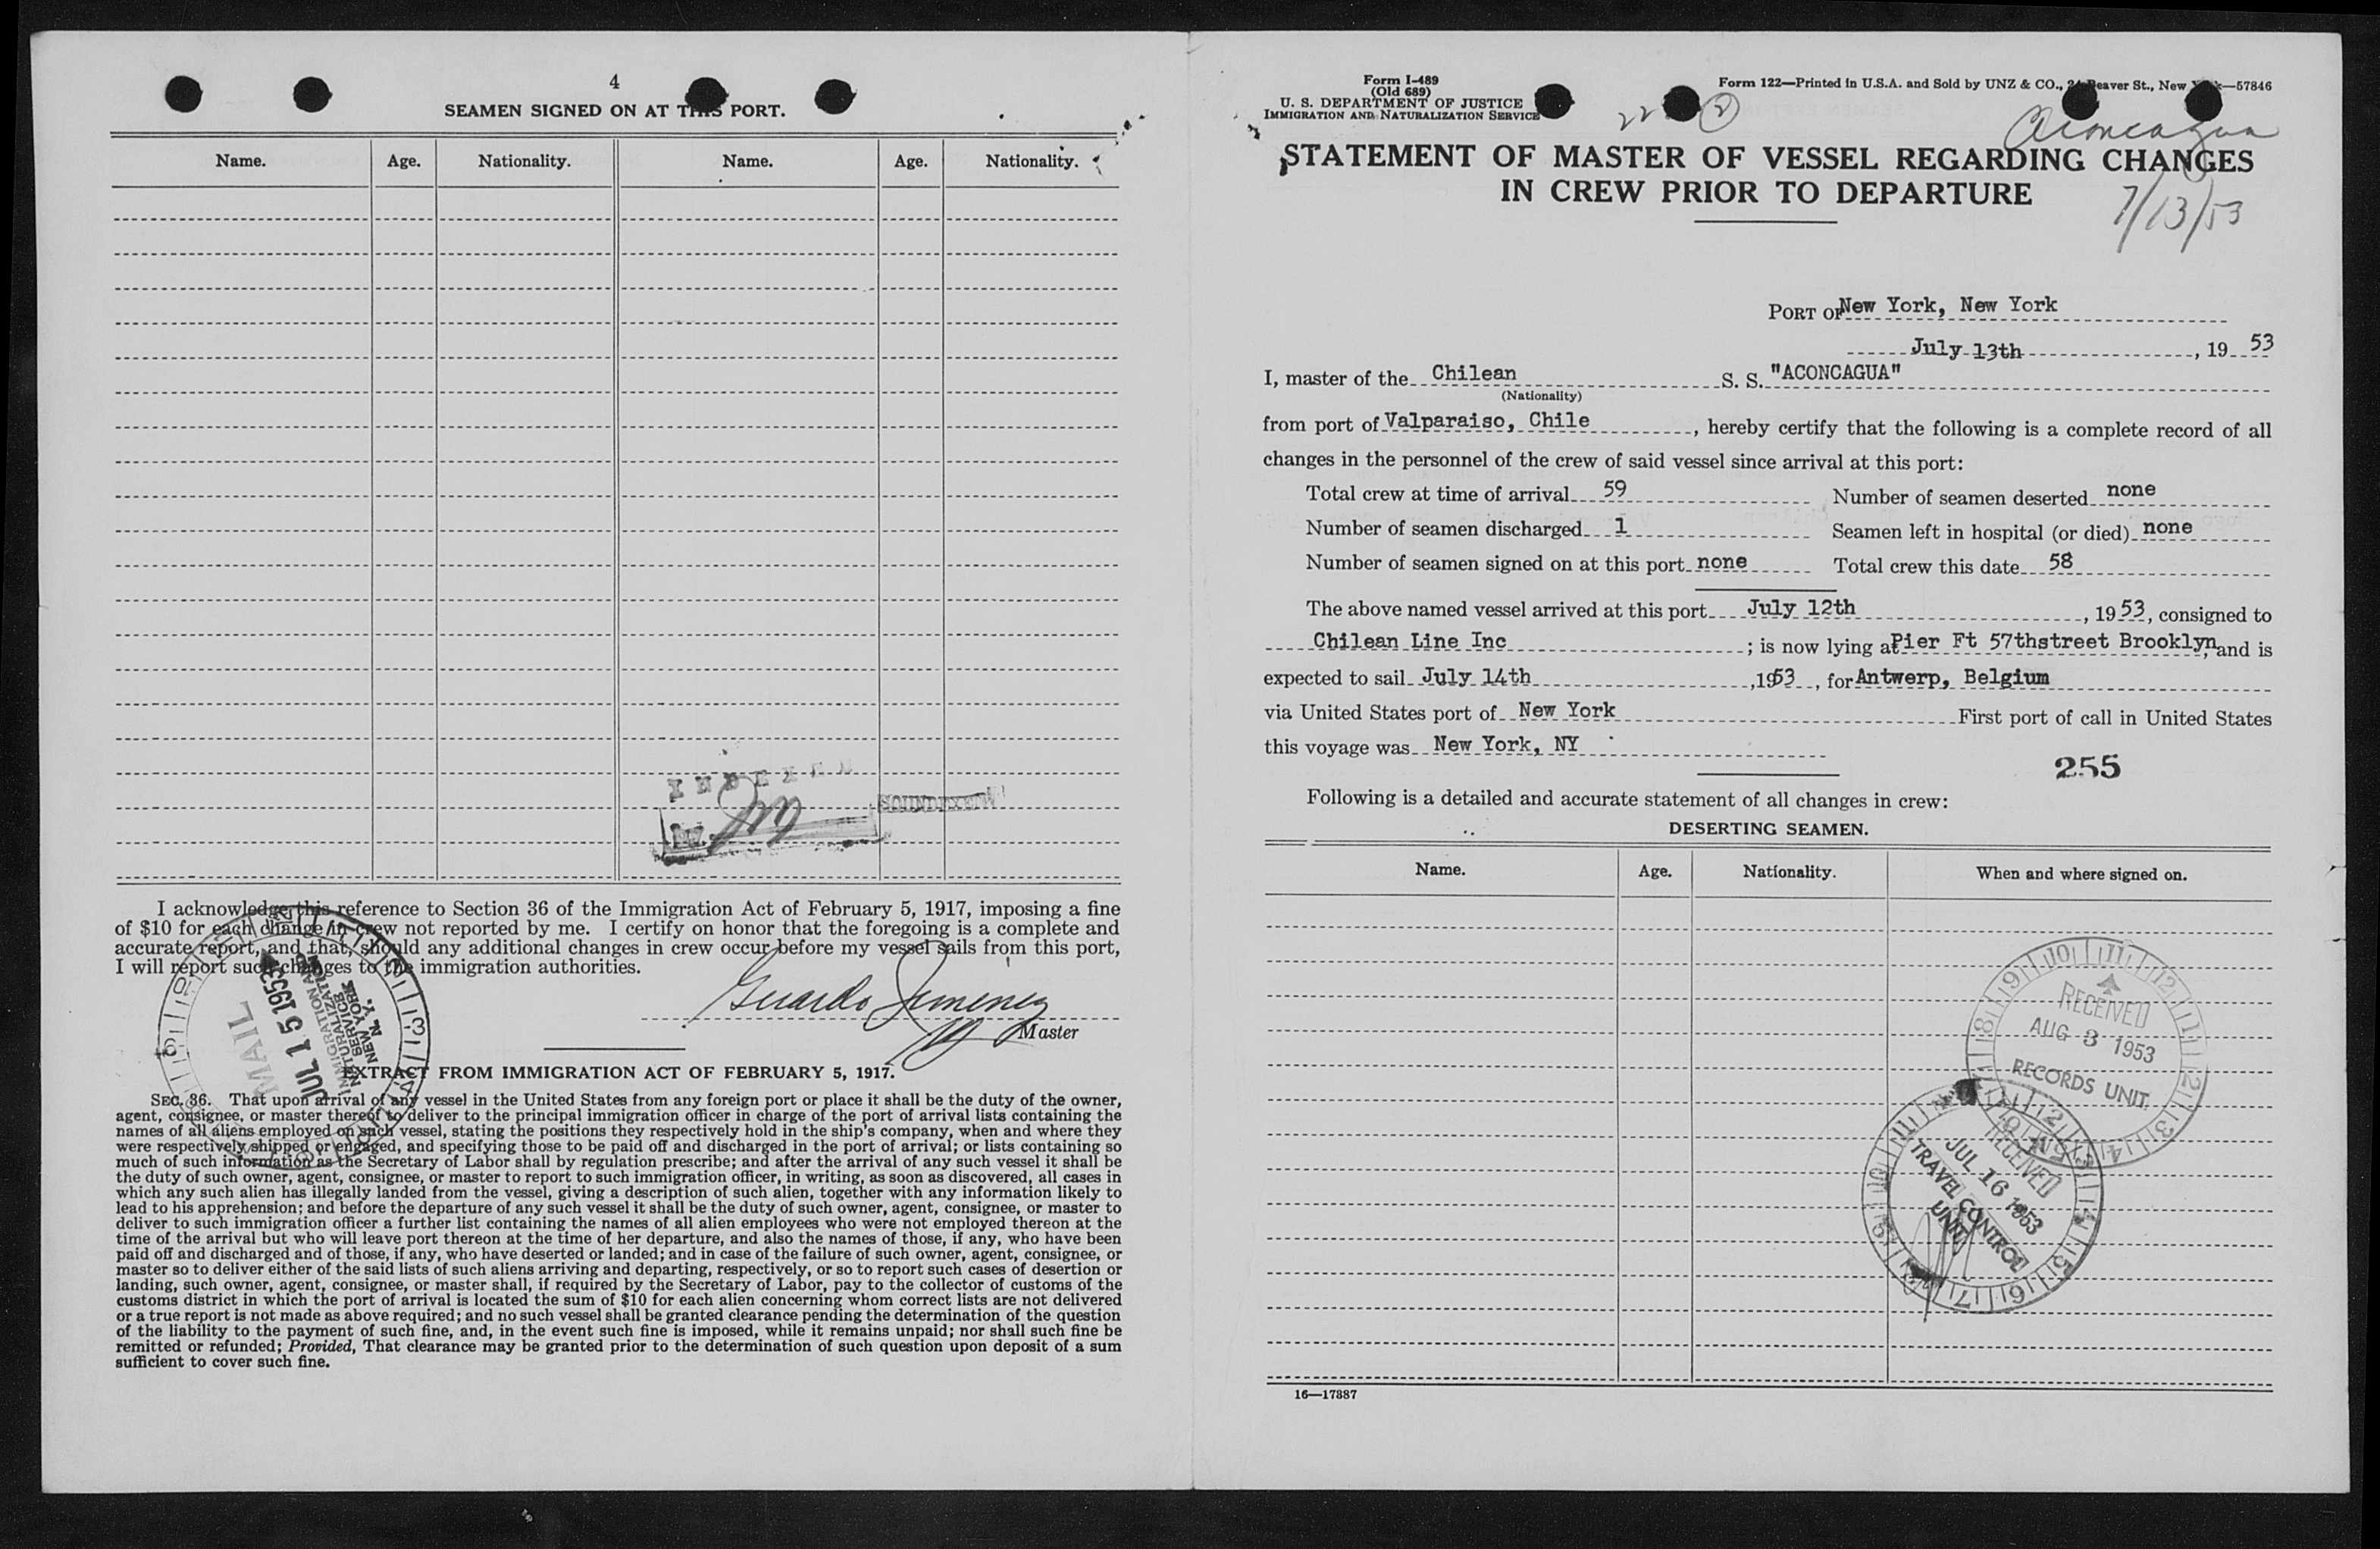 4
SEAMEN SIGNED ON AT THIS PORT.
Name. Age. Nationality. Name. Age. Nationality.
INDEXED
SOUNDEXED
I acknowledge this reference to Section 36 of the Immigration Act of February 5, 1917, imposing a fine
of $10 for each change in crew not reported by me. I certify on honor that the foregoing is a complete and
accurate report, and that, should any additional changes in crew occur before my vessel sails from this port,
I will report such changes to the immigration authorities.
MAIL
JUL 15 1953
IMMIGRATION AND
NATURALIZATION
SERVICE
NEW YORK
N. Y.
Master
EXTRACT FROM IMMIGRATION ACT OF FEBRUARY 5, 1917.
SEC. 36. That upon arrival of any vessel in the United States from any foreign port or place it shall be the duty of the owner,
agent, consignee, or master thereof to deliver to the principal immigration officer in charge of the port of arrival lists containing the
names of all aliens employed on such vessel, stating the positions they respectively hold in the ship's company, when and where they
were respectively shipped or engaged, and specifying those to be paid off and discharged in the port of arrival; or lists containing so
much of such information as the Secretary of Labor shall by regulation prescribe; and after the arrival of any such vessel it shall be
the duty of such owner, agent, consignee, or master to report to such immigration officer, in writing, as soon as discovered, all cases in
which any such alien has illegally landed from the vessel, giving a description of such alien, together with any information likely to
lead to his apprehension; and before the departure of any such vessel it shall be the duty of such owner, agent, consignee, or master to
deliver to such immigration officer a further list containing the names of all alien employees who were not employed thereon at the
time of the arrival but who will leave port thereon at the time of her departure, and also the names of those, if any, who have been
paid off and discharged and of those, if any, who have deserted or landed; and in case of the failure of such owner, agent, consignee, or
master so to deliver either of the said lists of such aliens arriving and departing, respectively, or so to report such cases of desertion or
landing, such owner, agent, consignee, or master shall, if required by the Secretary of Labor, pay to the collector of customs of the
customs district in which the port of arrival is located the sum of $10 for each alien concerning whom correct lists are not delivered
or a true report is not made as above required; and no such vessel shall be granted clearance pending the determination of the question
of the liability to the payment of such fine, and, in the event such fine is imposed, while it remains unpaid; nor shall such fine be
remitted or refunded; Provided, That clearance may be granted prior to the determination of such question upon deposit of a sum
sufficient to cover such fine.
Form I-489
(Old 689)
U. S. DEPARTMENT OF JUSTICE
IMMIGRATION AND NATURALIZATION SERVICE
22 2
Form 122—Printed in U.S.A. and Sold by UNZ & CO., 24 Beaver St., New York—57846
Aconcagua
STATEMENT OF MASTER OF VESSEL REGARDING CHANGES
IN CREW PRIOR TO DEPARTURE
7/13/53
PORT OF New York, New York
July 13th, 19 53
I, master of the Chilean S. S. "ACONCAGUA"
(Nationality)
from port of Valparaiso, Chile, hereby certify that the following is a complete record of all
changes in the personnel of the crew of said vessel since arrival at this port:
Total crew at time of arrival 59 Number of seamen deserted none
Number of seamen discharged 1 Seamen left in hospital (or died) none
Number of seamen signed on at this port none Total crew this date 58
The above named vessel arrived at this port July 12th, 1953, consigned to
Chilean Line Inc; is now lying at Pier Ft 57thstreet Brooklyn, and is
expected to sail July 14th, 1953, for Antwerp, Belgium
via United States port of New York First port of call in United States
this voyage was New York, NY
255
Following is a detailed and accurate statement of all changes in crew:
DESERTING SEAMEN.
Name. Age. Nationality. When and where signed on.
RECEIVED
AUG 3 1953
RECORDS UNIT
RECEIVED
JUL 16 1953
TRAVEL CONTROL
UNIT
16—17887